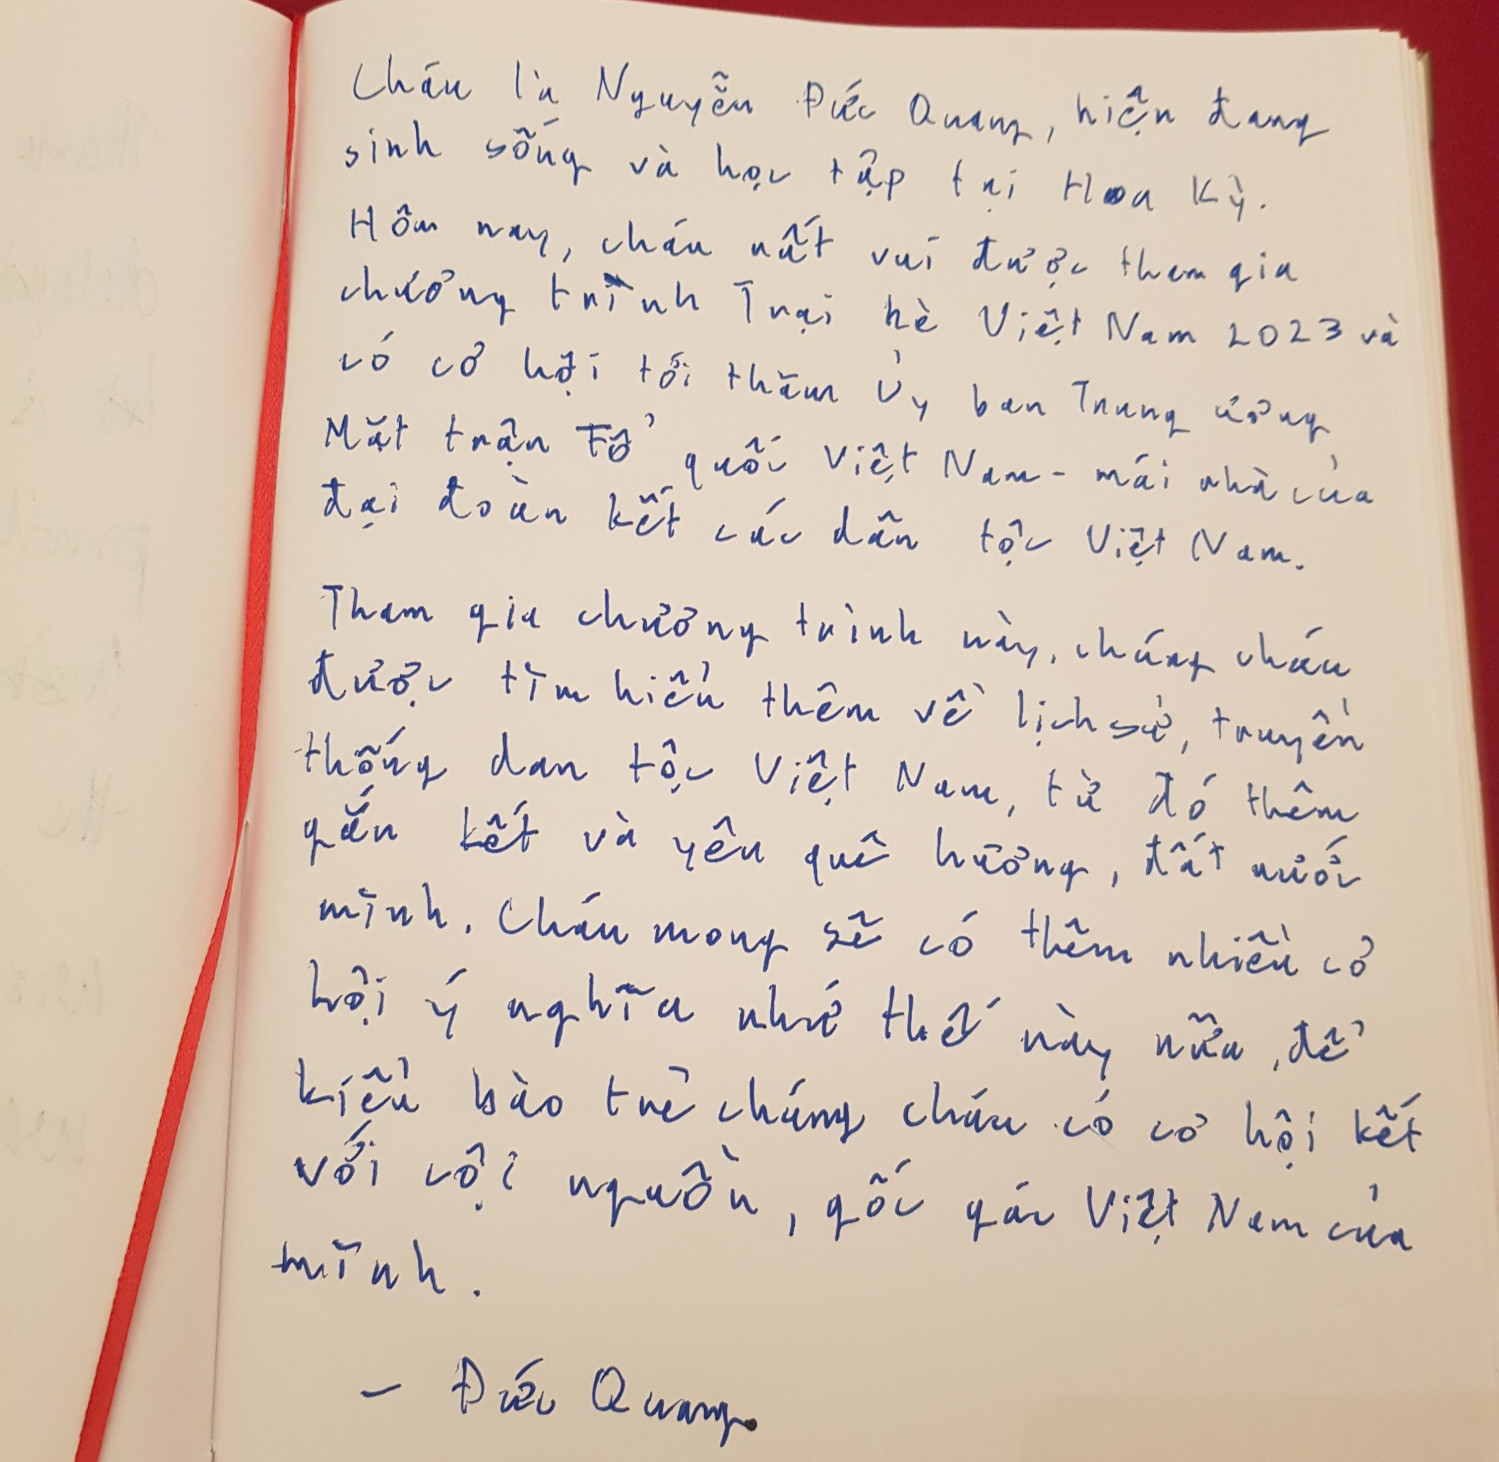 Cháu là Nguyễn Đức Quang, hiện đang
sinh sống và học tập tại Hoa Kỳ.
Hôm nay, cháu rất vui được tham gia
chương trình Trại hè Việt Nam 2023 và
có cơ hội tới thăm Ủy ban Trung ương
Mặt trận Tổ quốc Việt Nam - mái nhà của
đại đoàn kết các dân tộc Việt Nam.
Tham gia chương trình này, chúng cháu
được tìm hiểu thêm về lịch sử, truyền
thống dan tộc Việt Nam, từ đó thêm
gắn kết và yêu quê hương, đất nước
mình. Cháu mong sẽ có thêm nhiều cơ
hội ý nghĩa như thế này nữa, để
kiều bào trẻ chúng cháu có cơ hội kết
với cội nguồn, gốc gác Việt Nam của
mình.
- Đức Quang